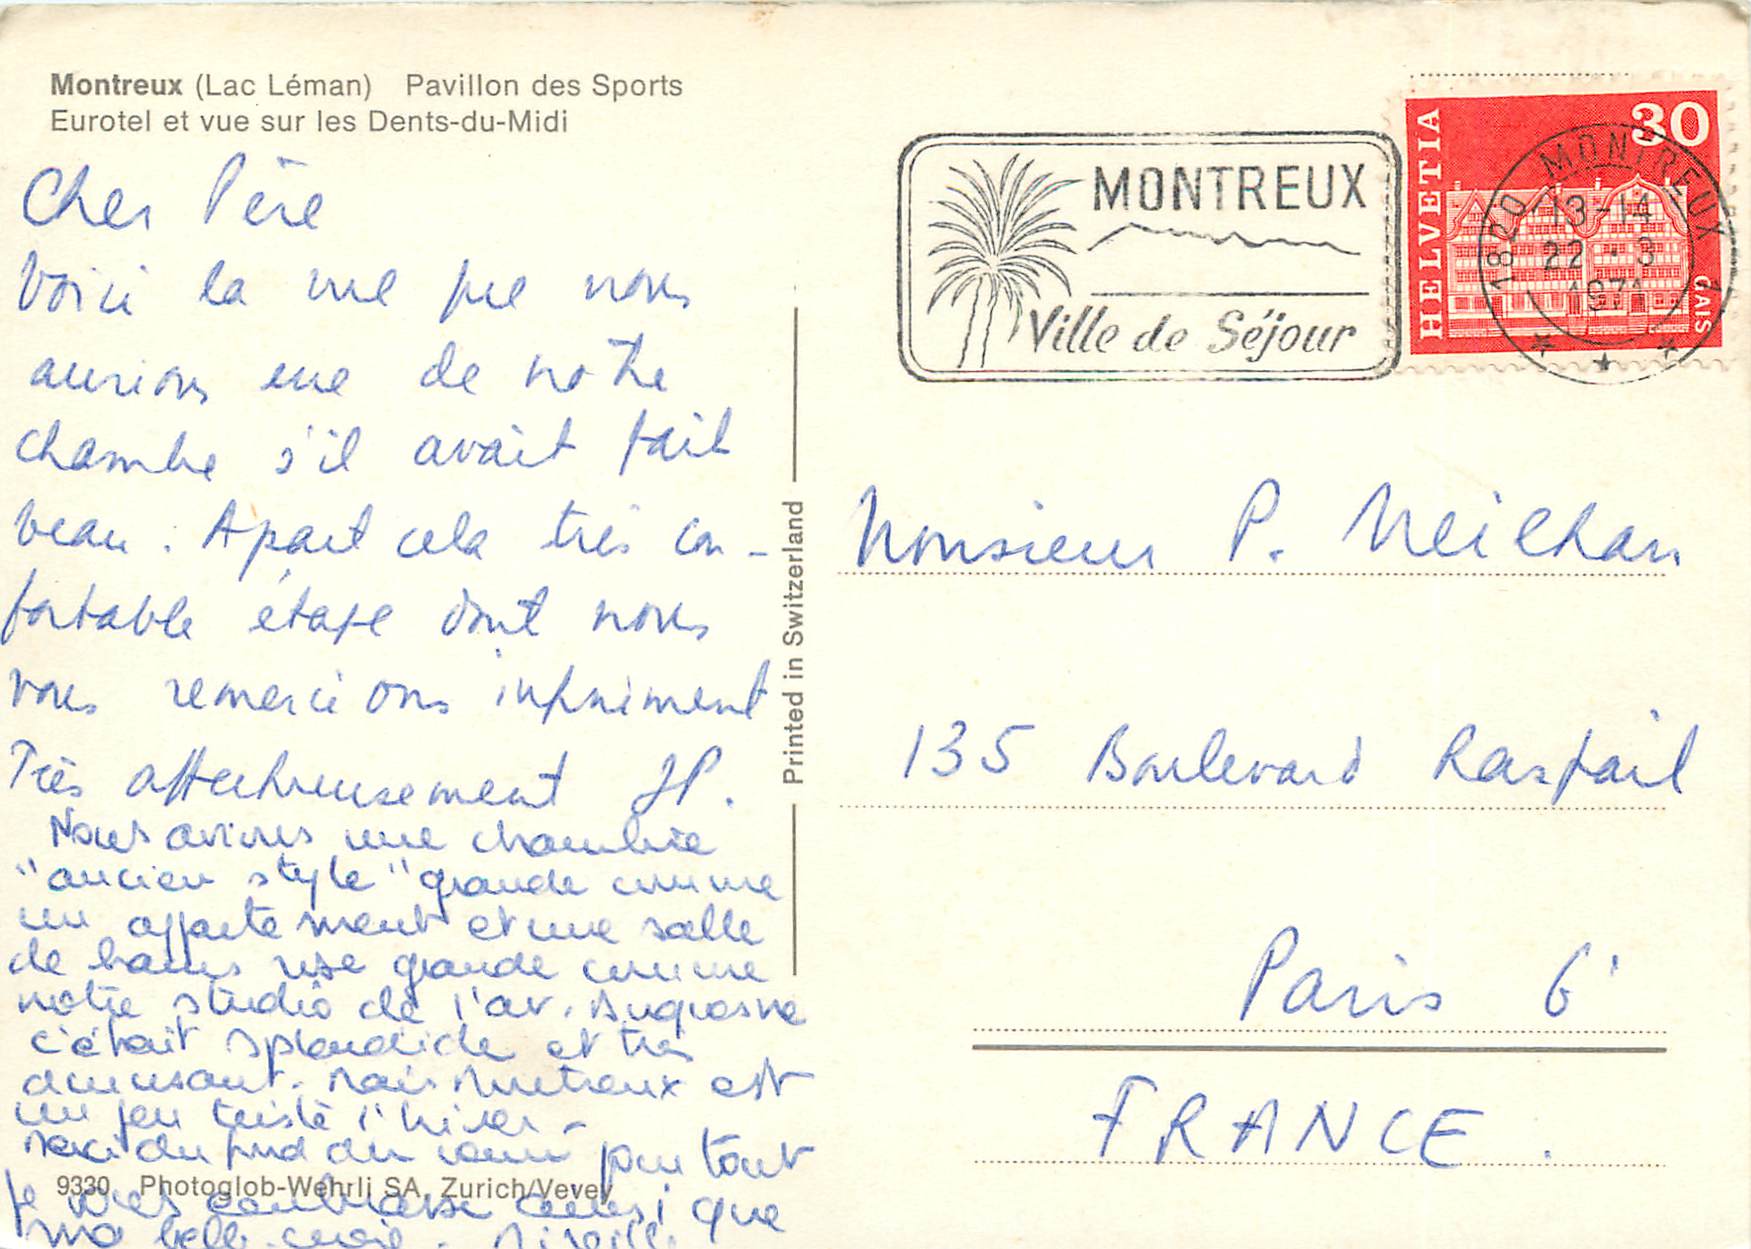 Montreux (Lac Léman) Pavillon des Sports
Eurotel et vue sur les Dents-du-Midi
Cher Père
Voici la vue que nous
aurions eue de notre
chambre s'il avait fait
beau. Apart cela très con-
fortable étape dont nous
vous remercions infiniment
Très affectueusement JP.
Nous avions une chambre
"ancien style" grande comme
un appartement et une salle
de bains rose grande comme
notre studio de l'av. Duquesne
c'était splendide et très
amusant. Mais Montreux est
un peu triste l'hiver -
Merci du fond du coeur pour tout
Je vous embrasse ainsi que
ma belle-mère. Mireille
9330 Photoglob-Wehrli SA, Zurich/Vevey
Printed in Switzerland
MONTREUX
Ville de Séjour
HELVETIA
30
GAIS
1820 MONTREUX 1
13-14
22-3
1971
Monsieur P. Meilhan
135 Boulevard Raspail
Paris 6
FRANCE.